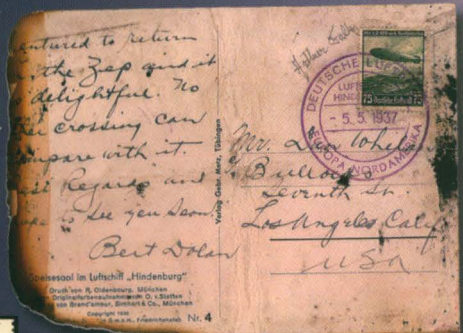 ventured to return
the Zep and it
delightful. No
crossing can
compare with it.
Best Regards and
hope to see you soon.
Bert Dolan
Speisesaal im Luftschiff „Hindenburg"
Druck von R. Oldenbourg, München
Originalfarbenaufnahme v. O. v. Stetten
von Brend'amour, Simhart & Co., München
Copyright 1936
G.m.b.H., Friedrichshafen
Nr. 4
Verlag Gebr. Metz, Tübingen
DEUTSCHE LUFT
LUFT
HIND
- 5. 5. 1937
EUROPA NORDAMERIKA
75 Deutsches Reich 75
Mr. Dan Whelan
Bullock
Seventh St.
Los Angeles Calif
USA